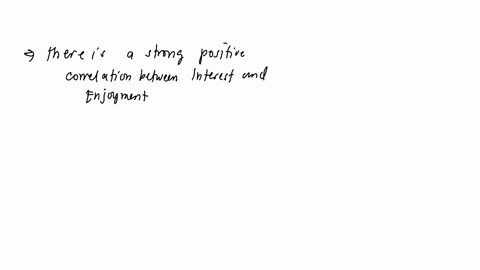 ⇒ there is a strong positive
correlation between Interest and
Enjoyment